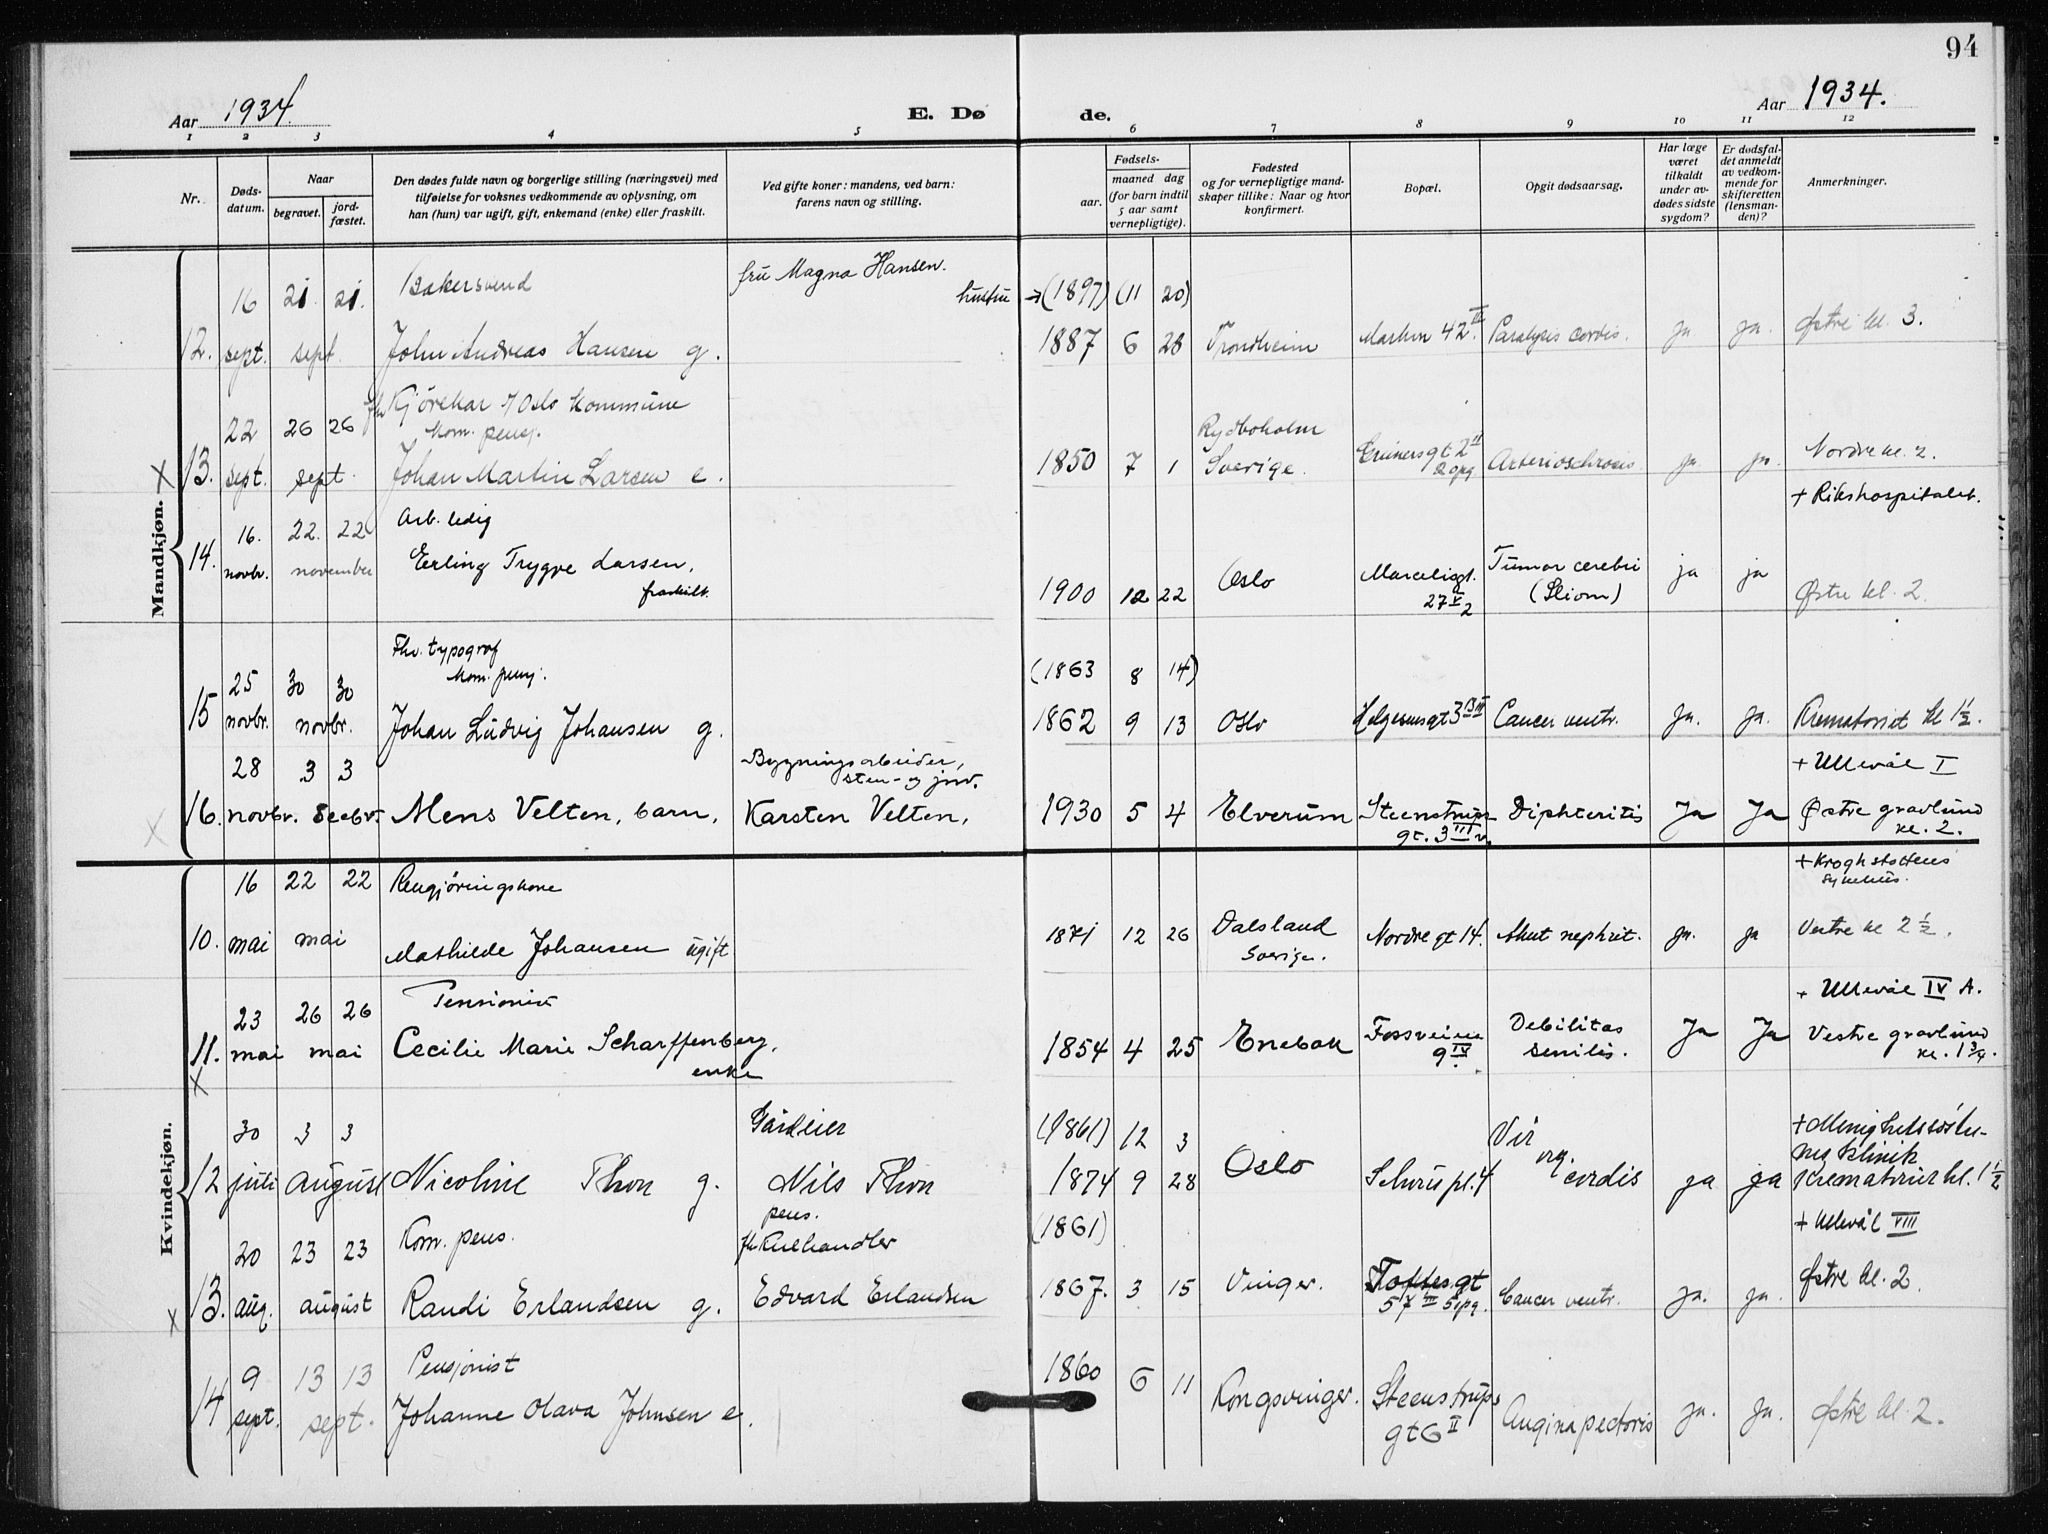 94
Aar 1934.
E. Dø
de.
Aar 1934.
1 2 3 4 5 6 7 8 9 10 11 12
Nr.
Døds-
datum.
Naar
begravet.
jord-
fæstet.
Den dødes fulde navn og borgerlige stilling (næringsvei) med
tilføielse for voksnes vedkommende av oplysning, om
han (hun) var ugift, gift, enkemand (enke) eller fraskilt.
Ved gifte koner: mandens, ved barn:
farens navn og stilling.
Fødsels-
aar.
maaned dag
(for barn indtil
5 aar samt
vernepligtige).
Fødested
og for vernepligtige mand-
skaper tillike: Naar og hvor
konfirmert.
Bopæl.
Opgit dødsaarsag.
Har læge
været
tilkaldt
under av-
dødes sidste
sygdom?
Er dødsfal-
det anmeldt
av vedkom-
mende for
skifteretten
(lensman-
den)?
Anmerkninger.
Mandkjøn.
16 21. 21. Bakersvend fru Magna Hansen.
hustru → (1897) (11 20)
12. sept. sept. John Andreas Hansen g. 1887 6 28 Trondheim 42 III Paralysis cordis. ja ja. Østre kl. 3.
22 26 26 fhv Kjørekar v/Oslo kommune
kom. pensj. Rydboholm
X 13. sept. sept. Johan Martin Larsen e. 1850 7 1 Sverige. Grünersgt 2 II
2 opg ja. ja. Nordre kl. 2.
+ Rikshospitalet.
16. 22. 22 Arb. ledig
14. novbr. november Erling Trygve Larsen,
fraskilt. 1900 12 22 Oslo Marceliigt.
27 V 2 Tumor cerebri
(Gliom) ja ja Østre kl. 2.
25 30 30 Fhv. typograf
kom. pensj. (1863 8 14)
15 novbr. novbr. Johan Ludvig Johansen g. 1862 9 13 Oslo Helgesensgt 3 Cancer ventr. ja. ja. Krematoriet kl 1½.
28 3 3 Bygningsarbeider,
sten- og jord. + Ullevål I
X 16. novbr. Decbr. Mens Velten, barn, Karsten Velten, 1930 5 4 Elverum Steenstrups
gt. 3 III v. Diphteritis Ja Ja Østre gravlund
kl. 2.
Kvindekjøn.
16 22 22 Rengjøringskone + Krogh støttens
sykehus.
10. mai mai Mathilde Johansen ugift 1871 12 26 Dalsland
Sverige. Nordregt 14. Akut nephrit. ja. ja Vestre kl 2½.
23 26 26 Pensionist + Ullevål IV A.
11. mai mai Cecilie Marie Scharffenberg,
enke 1854 4 25 Enebak Fossveien
9 IV. Debilitas
senilis. Ja Ja Vestre gravlund
kl. 1¾.
X
30 3 3 Gårdeier (1861) 12 3 + Menighetssøstre-
nes klinik
12 juli august Nicoline Thon g. Nils Thon
pens. 1874 9 28 Oslo Schous pl. 4 Vit org. cordis ja ja Krematoriet kl. 1½
20 23 23 Kom. pens. fhv Kulhandler (1861) + Ullevål VIII
X 13. aug. august Randi Erlandsen g. Edvard Erlandsen 1867. 3 15 Vinger. Toftesgt
57 III 5 opg. Cancer ventr. ja. ja. Østre kl. 2.
9 13 13 Pensjonist
14 sept. sept. Johanne Olava Johnsen e. 1860 6 11 Kongsvinger. Steenstrups
gt 6 II Angina pectoris ja. ja. Østre kl. 2.